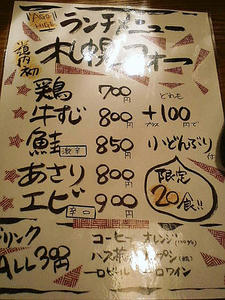 ランチメニュー
道内初 札幌フォー
鶏 700円 どれも
牛すじ 800円 +100円で
鮭 激辛 850円 小どんぶり付
あさり 800円 限定
エビ 辛口 900円 20食!!
ドリンク コーヒー オレンジ
ALL300円 ハス茶